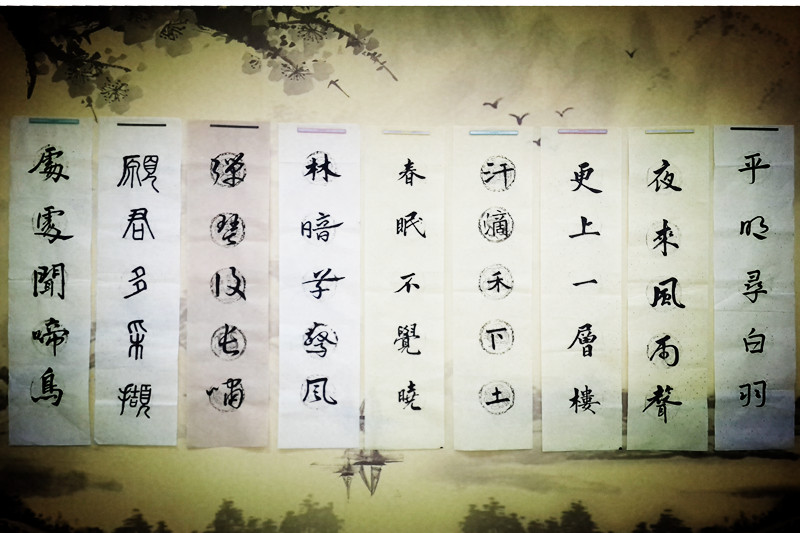 平明尋白羽
夜來風雨聲
更上一層樓
汗滴禾下土
春眠不覺曉
林暗草驚風
彈琴復長嘯
願君多采擷
處處聞啼鳥